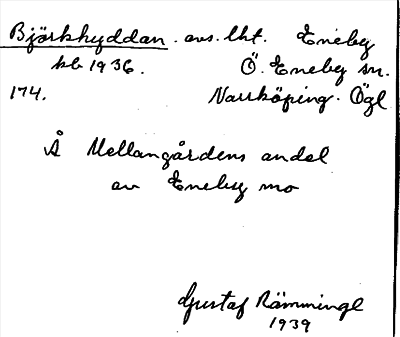 Björkhyddan. avs. lht. Eneby
kb 1936. Ö. Eneby sn.
174. Norrköping. Ögl
Å Mellangårdens andel
av Eneby mo
Gustaf Rämmingl
1939